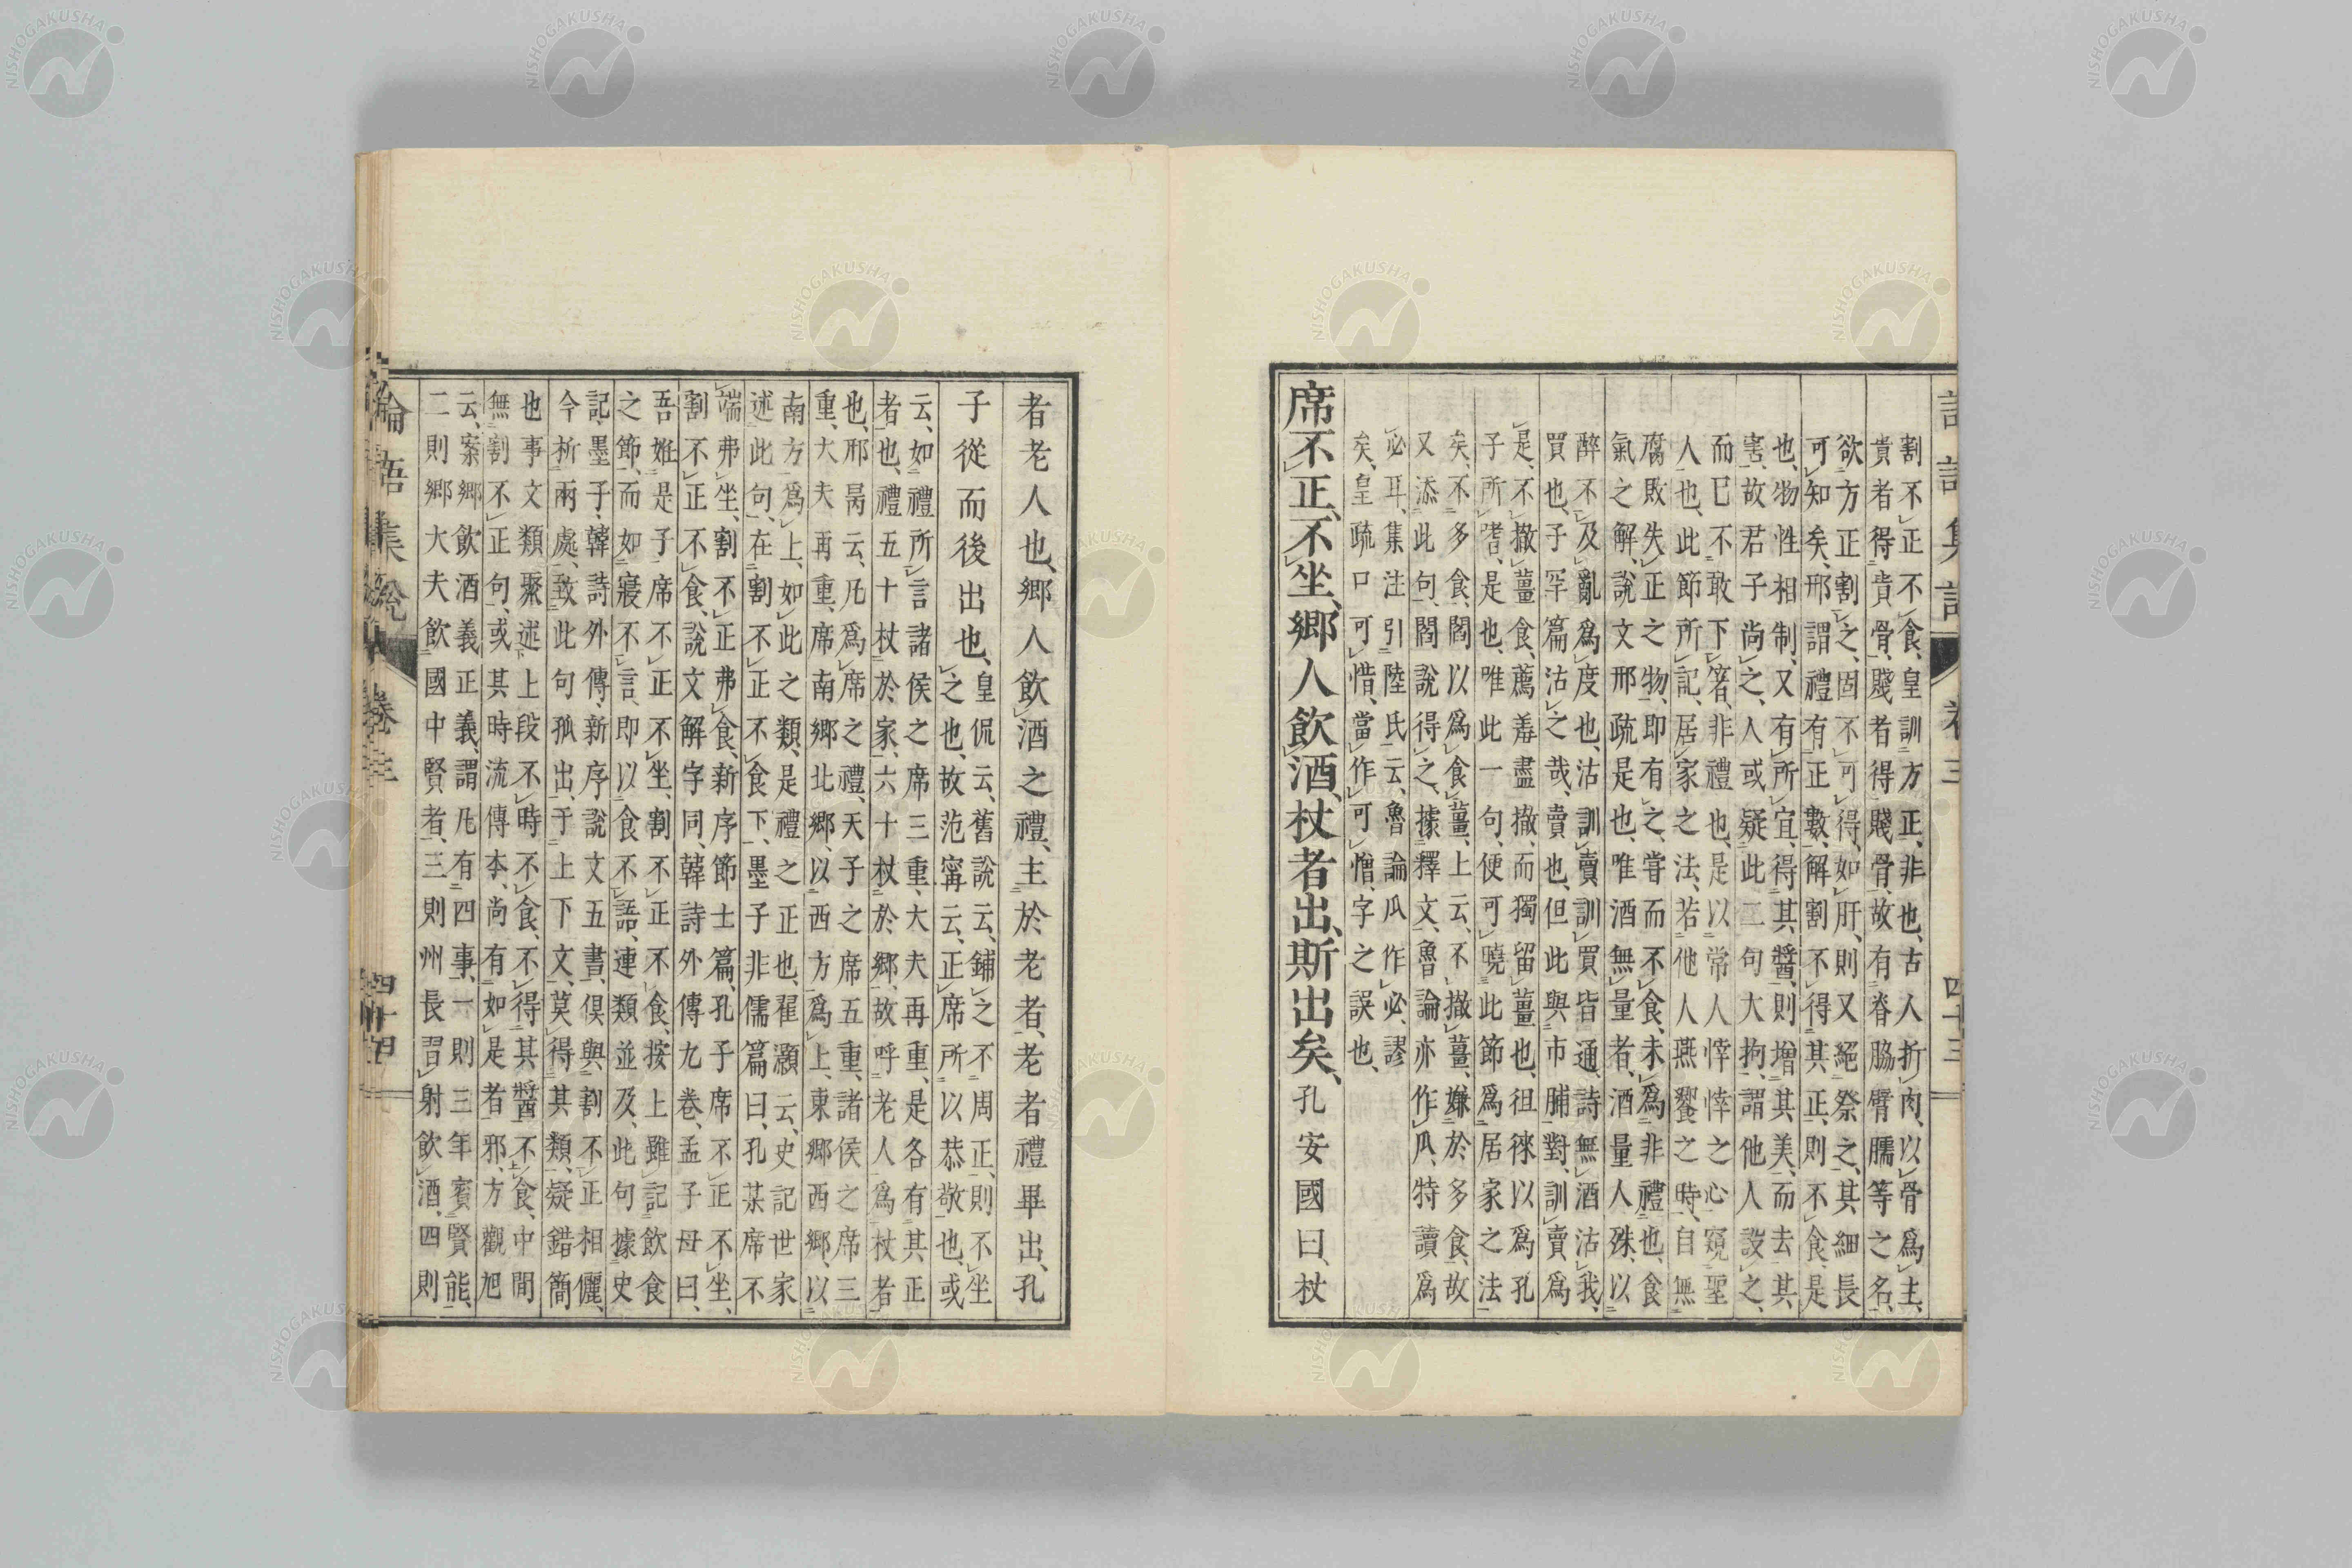 割不正不食、皇訓方正、非也、古人折肉、以骨爲主、
貴者得貴骨、賤者得賤骨、故有脊脇臂臑等之名、
欲方正割之、固不可得、如肝、則又絕祭之、其細長
可知矣、邢謂禮有正數、解割不得其正、則不食、是
也、物性相制、又有所宜、得其醬、則增其美、而去其
害、故君子尚之、人或疑此二句大拘、謂他人設之、
而已不敢下箸、非禮也、是以常人悻悻之心、窺聖
人也、此節所記、居家之法、若他人燕饗之時、自無
腐敗失正之物、即有之、嘗而不食、未爲非禮也、食
氣之解、說文邢疏是也、唯酒無量者、酒量人殊、以
醉不及亂爲度也、沽訓賣訓買皆通、詩無酒沽我、
買也、子罕篇沽之哉、賣也、但此與市脯對、訓賣爲
是、不撤薑食、薦羞盡撤、而獨留薑也、徂徠以爲孔
子所嗜、是也、唯此一句、便可曉此節爲居家之法
矣、不多食、閻以爲食薑、上云、不撤薑、嫌於多食、故
又添此句、閻說得之、據釋文、魯論亦作瓜、特讀爲
必耳、集注引陸氏云、魯論瓜作必、謬
矣、皇疏口可惜、當作可憎、字之誤也、
席不正、不坐、鄉人飲酒、杖者出、斯出矣、孔安國曰、杖
者老人也、鄉人飲酒之禮、主於老者、老者禮畢出、孔
子從而後出也、
皇侃云、舊說云、鋪之不周正、則不坐
之也、故范甯云、正席所以恭敬也、或
云、如禮所言諸侯之席三重、大夫再重、是各有其正
者也、禮五十杖於家、六十杖於鄉、故呼老人爲杖者
也、邢昺云、凡爲席之禮、天子之席五重、諸侯之席三
重、大夫再重、席南鄉北鄉、以西方爲上、東鄉西鄉、以
南方爲上、如此之類、是禮之正也、翟灝云、史記世家
述此句、在割不正不食下、墨子非儒篇曰、孔某席不
端弗坐、割不正弗食、新序節士篇、孔子席不正不坐、
割不正不食、說文解字同、韓詩外傳九卷、孟子母曰、
吾姙是子、席不正不坐、割不正不食、按上雖記飲食
之節、而如寢不言、即以食不語、連類並及、此句據史
記、墨子、韓詩外傳、新序說文五書、俱與割不正相儷、
今析兩處、致此句孤出、于上下文、莫得其類、疑錯簡
也、事文類聚述上段不時不食、不得其醬不食、中間
無割不正句、或其時流傳本、尚有如是者邪、方觀旭
云、案鄉飲酒義正義、謂凡有四事、一則三年賓賢能、
二則鄉大夫飲國中賢者、三則州長習射飲酒、四則
論語集說 卷三 四十三
論語集說 卷三 四十四